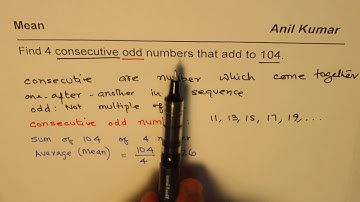 Mean
Anil Kumar
Find 4 consecutive odd numbers that add to 104.
consecutive are number which come together
one-after-another in sequence
odd: Not multiple of
consecutive odd num 11, 13, 15, 17, 19, ...
sum of 104 of 4 number
Average (Mean) = 104/4 26